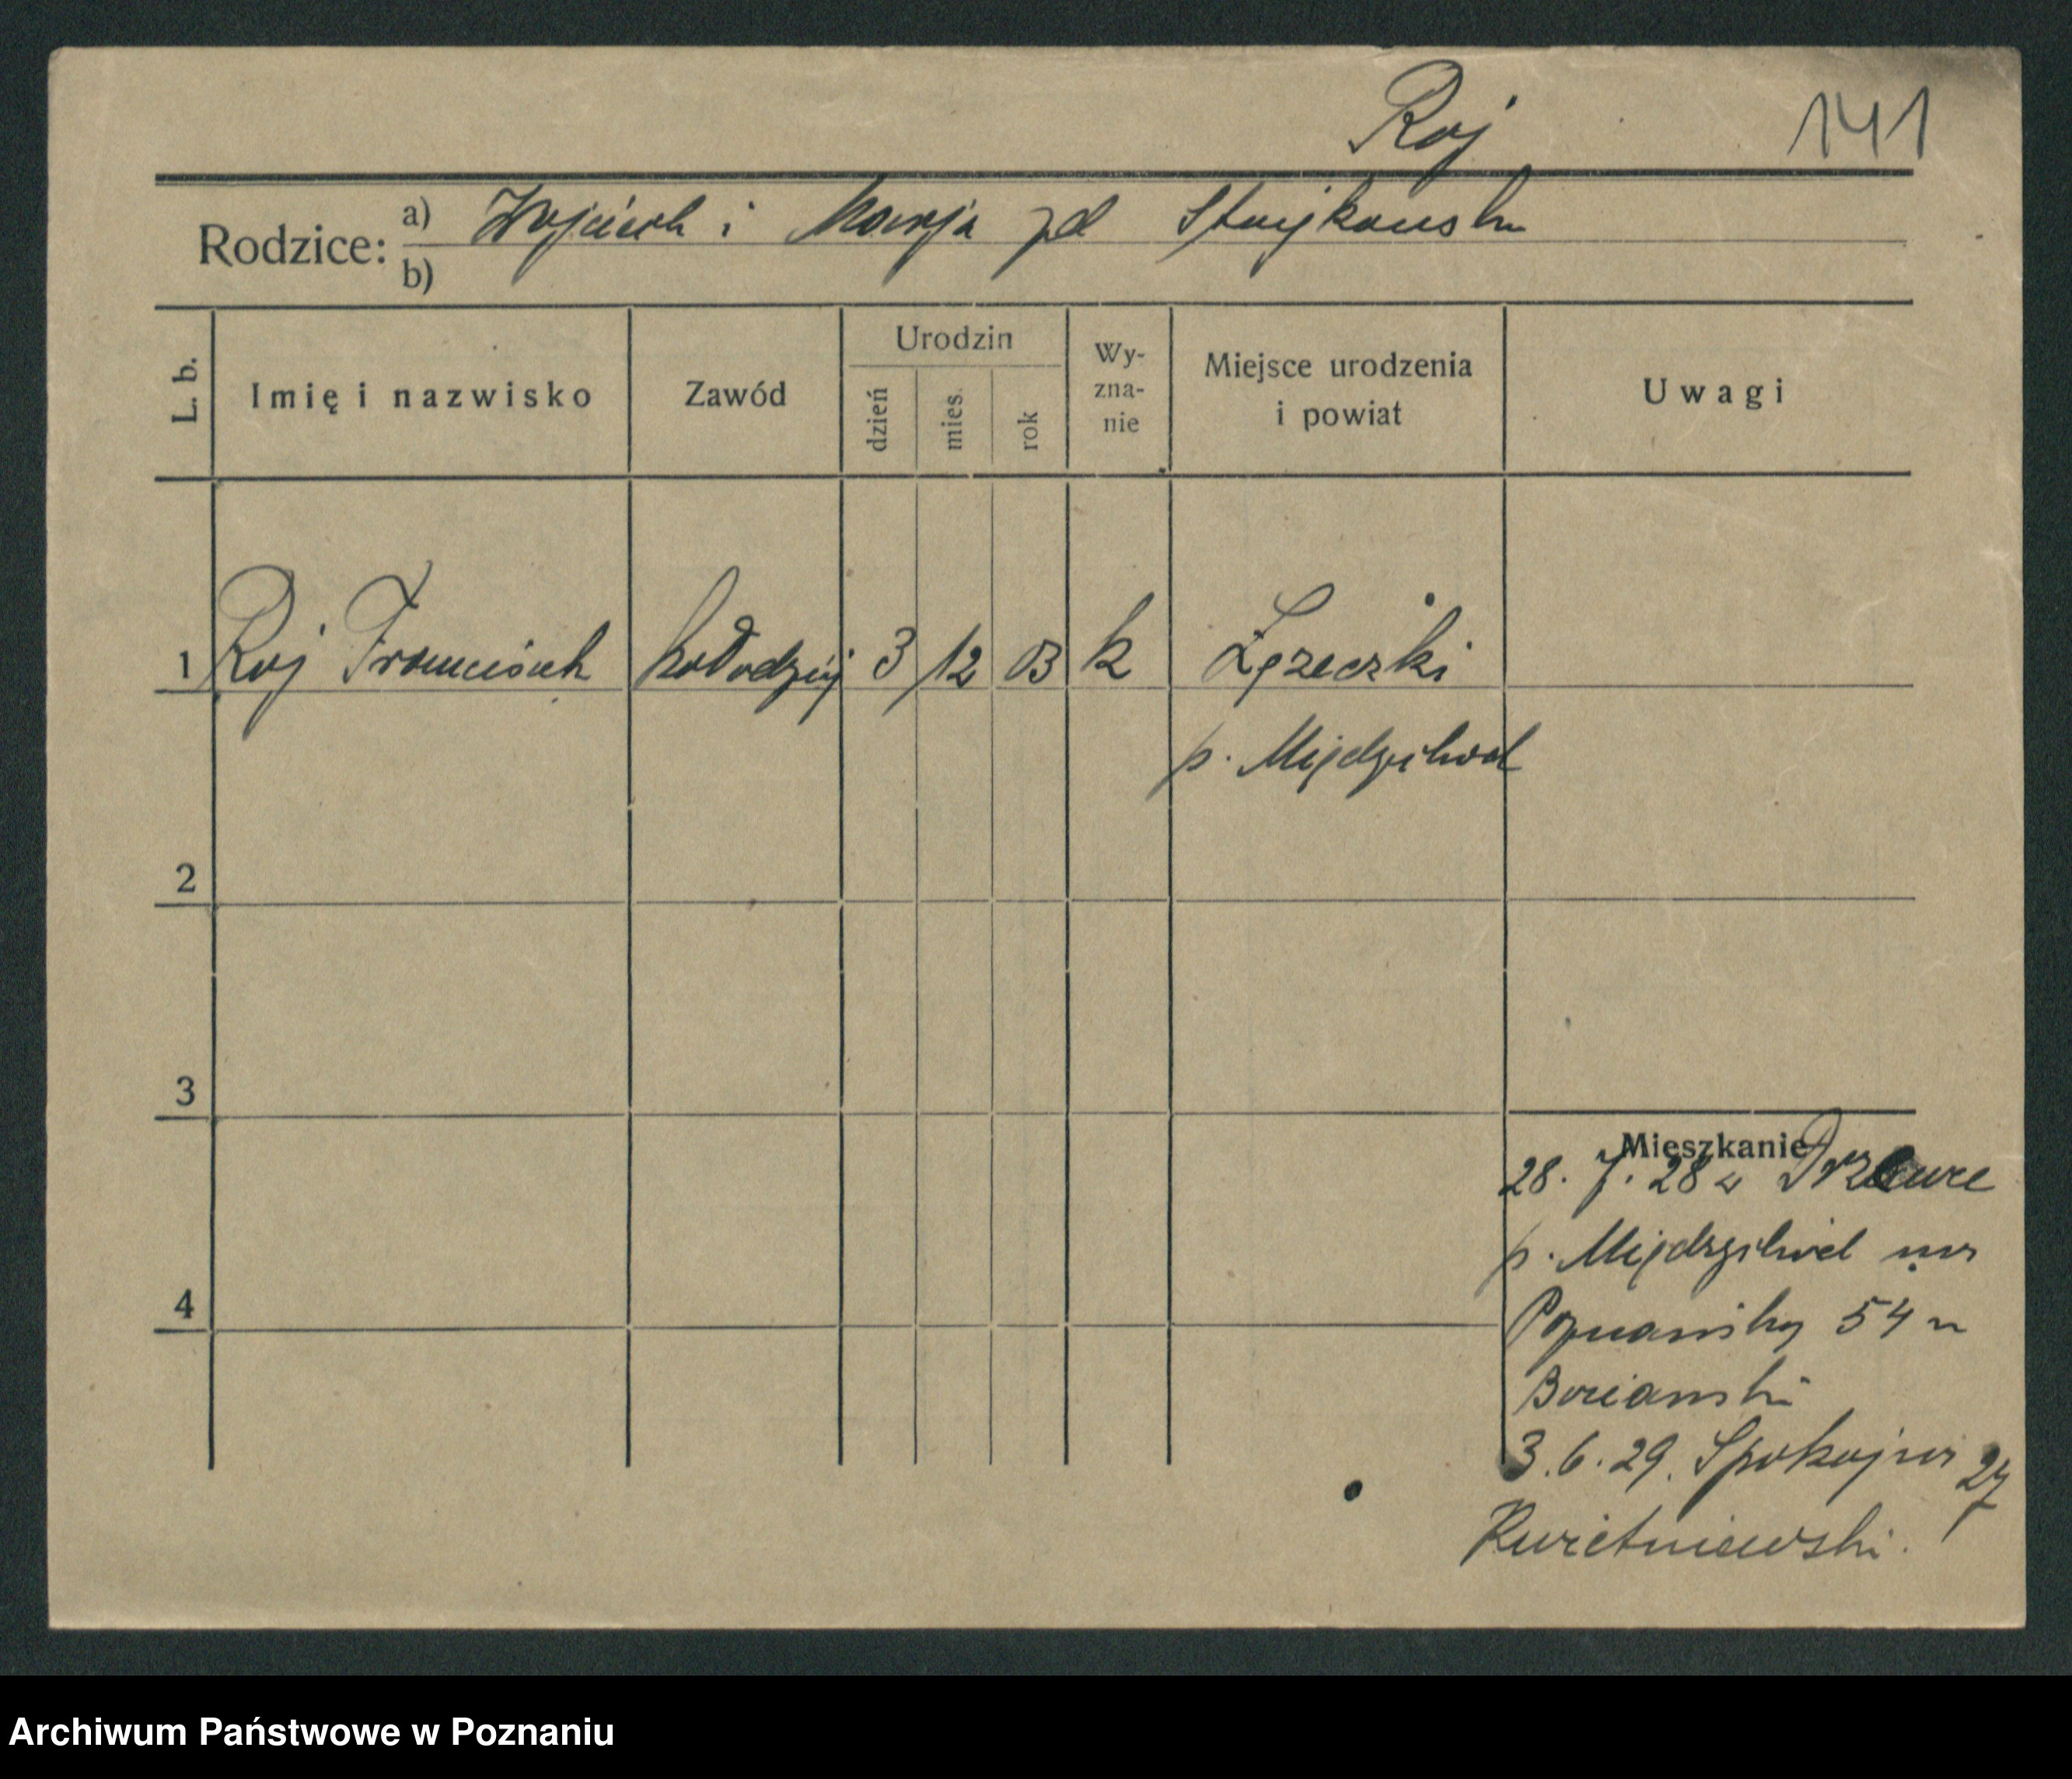 Roj 141
Rodzice: a) Wojciech i Marja zd
b)
L. b. Imię i nazwisko Zawód Urodzin dzień mies. rok Wy-zna-nie Miejsce urodzenia i powiat Uwagi
1 Roj Franciszek kołodziej 3 12 03 k Łężeczki
p. Międzychód
2
3
Mieszkanie
28. 7. 28 z
p. Międzychód na
4
Poznańska 54 u
3. 6. 29. Spokojna 27
Kwietniewski.
Archiwum Państwowe w Poznaniu